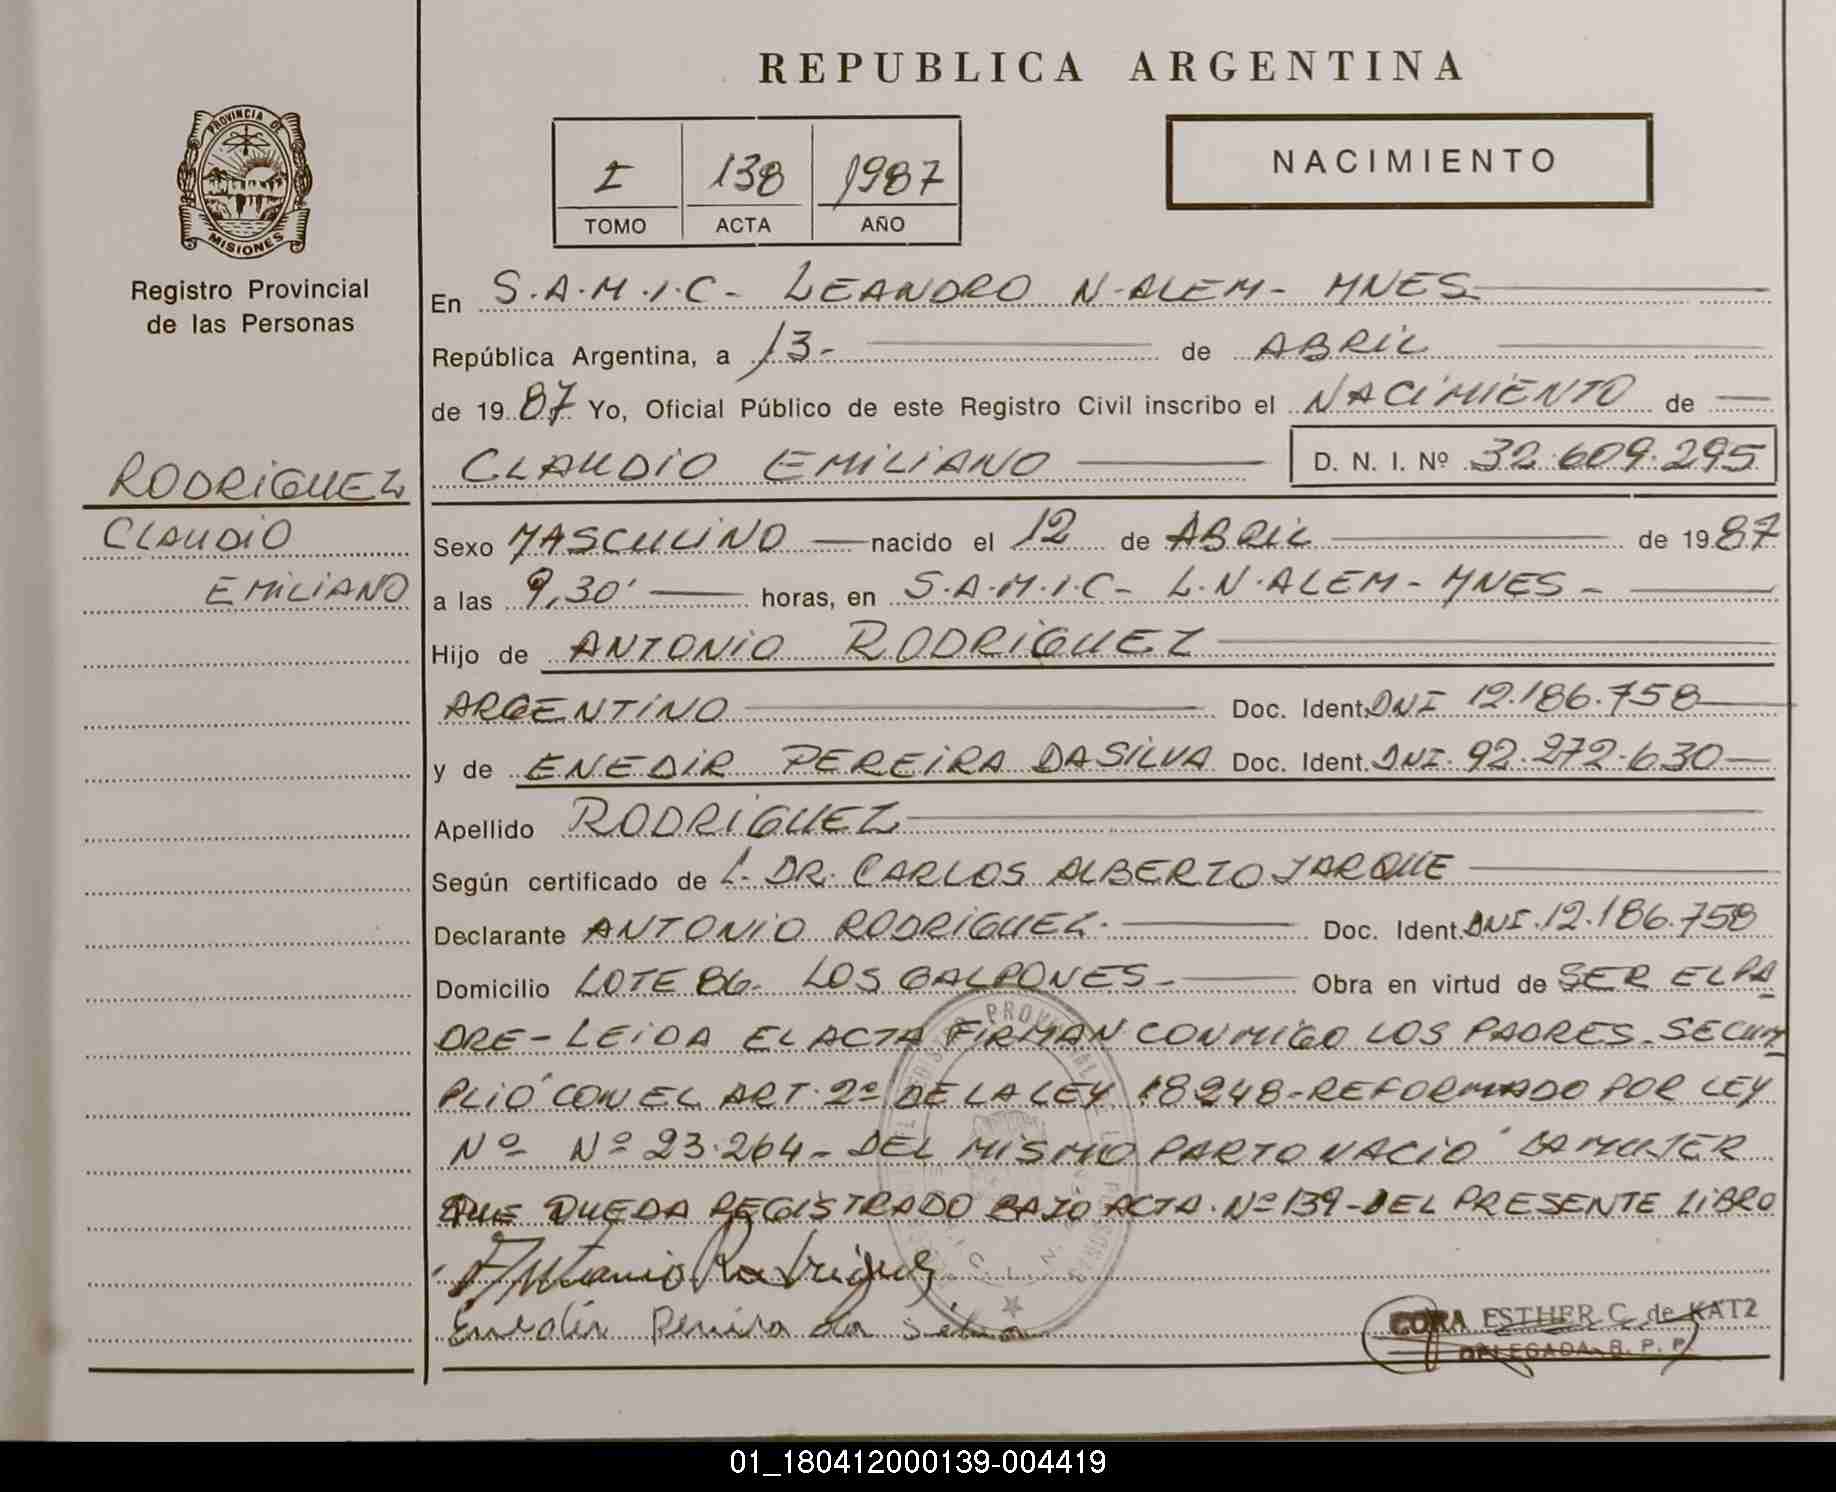 REPUBLICA ARGENTINA
PROVINCIA DE
MISIONES
Registro Provincial
de las Personas
I 138 1987
TOMO ACTA AÑO
NACIMIENTO
En S.A.M.I.C- LEANDRO N-ALEM- MNES
República Argentina, a 13- de ABRIL
de 1987 Yo, Oficial Público de este Registro Civil inscribo el NACIMIENTO de
CLAUDIO EMILIANO D. N. I. Nº 32.609.295
RODRIGUEZ
CLAUDIO
EMILIANO
Sexo MASCULINO nacido el 12 de ABRIL de 1987
a las 9,30' horas, en S.A.M.I.C- L.N.ALEM- MNES-
Hijo de ANTONIO RODRIGUEZ
ARGENTINO Doc. Ident. DNI 12.186.758
y de ENEDIR PEREIRA DASILVA Doc. Ident. DNI. 92.272.630
Apellido RODRIGUEZ
Según certificado de DR. CARLOS ALBERTO JARQUE
Declarante ANTONIO RODRIGUEZ. Doc. Ident. DNI. 12.186.758
Domicilio LOTE 86- LOS GALPONES- Obra en virtud de SER EL PA
DRE- LEIDA EL ACTA FIRMAN CONMIGO LOS PADRES- SE CUM
PLIÓ CON EL ART. 2º DE LA LEY 18248-REFORMADO POR LEY
Nº Nº 23.264- DEL MISMO PARTO NACIÓ LA MUJER
QUE QUEDA REGISTRADO BAJO ACTA. Nº 139-DEL PRESENTE LIBRO
Antonio Rodriguez
Enedir Pereira da Silva
CORA ESTHER C. de KATZ
DELEGADA R. P. P.
01_180412000139-004419